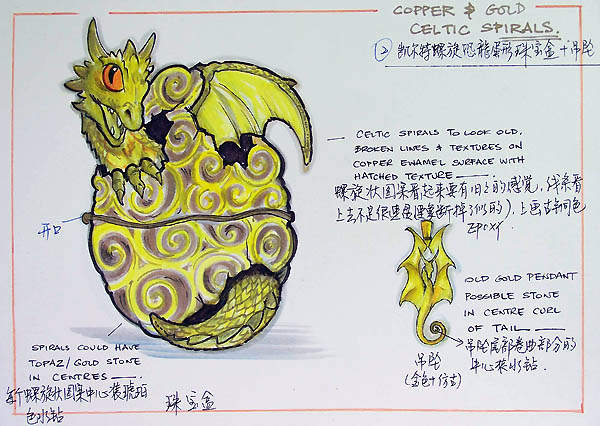 COPPER & GOLD
CELTIC SPIRALS.
② 凯尔特螺旋恐龍蛋形珠宝盒+吊坠
CELTIC SPIRALS TO LOOK OLD,
BROKEN LINES & TEXTURES ON
COPPER ENAMEL SURFACE WITH
HATCHED TEXTURE
螺旋状图案看起来要有旧的感觉,线条看
上去不是很连
断掉了似的),上面
色
epoxy.
开口
OLD GOLD PENDANT
POSSIBLE STONE
IN CENTRE CURL
OF TAIL
吊坠尾部卷曲部分的
中心装水钻.
吊坠
(金色+仿古)
SPIRALS COULD HAVE
TOPAZ/GOLD STONE
IN CENTRES
每个螺旋状图案中心装琥珀
色水钻
珠宝盒